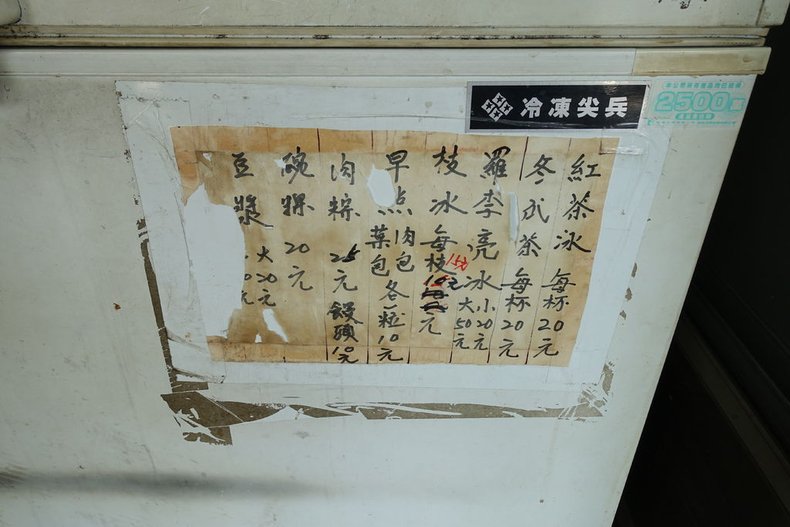 冷凍尖兵
2500
紅茶冰 每杯20元
冬瓜茶 每杯20元
羅李亮冰 小20元
大50元
枝冰 每枝15元
早点 肉包
菜包 各一粒10元
肉粽 25元 饅頭10元
碗粿 20元
豆漿 大20元
0元